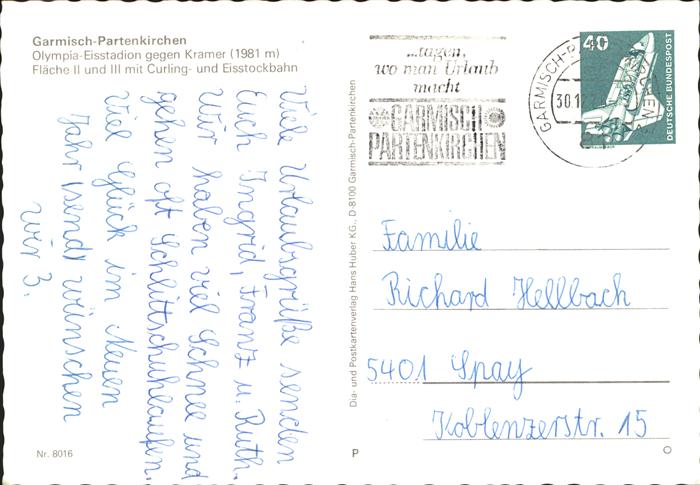 Garmisch-Partenkirchen
Olympia-Eisstadion gegen Kramer (1981 m)
Fläche II und III mit Curling- und Eisstockbahn
Viele Urlaubsgrüße senden
Euch Ingrid, Franz u. Ruth.
Wir haben viel Schnee und
gehen oft Schlittschuhlaufen.
Viel Glück im Neuen
Jahr sendt wünschen
wir 3.
Nr. 8016
Dia- und Postkartenverlag Hans Huber KG., D-8100 Garmisch-Partenkirchen
P
...tagen,
wo man Urlaub
macht
GARMISCH
PARTENKIRCHEN
GARMISCH-P
30.1
40
DEUTSCHE BUNDESPOST
Familie
Richard Hellbach
5401 Spay
Koblenzerstr. 15